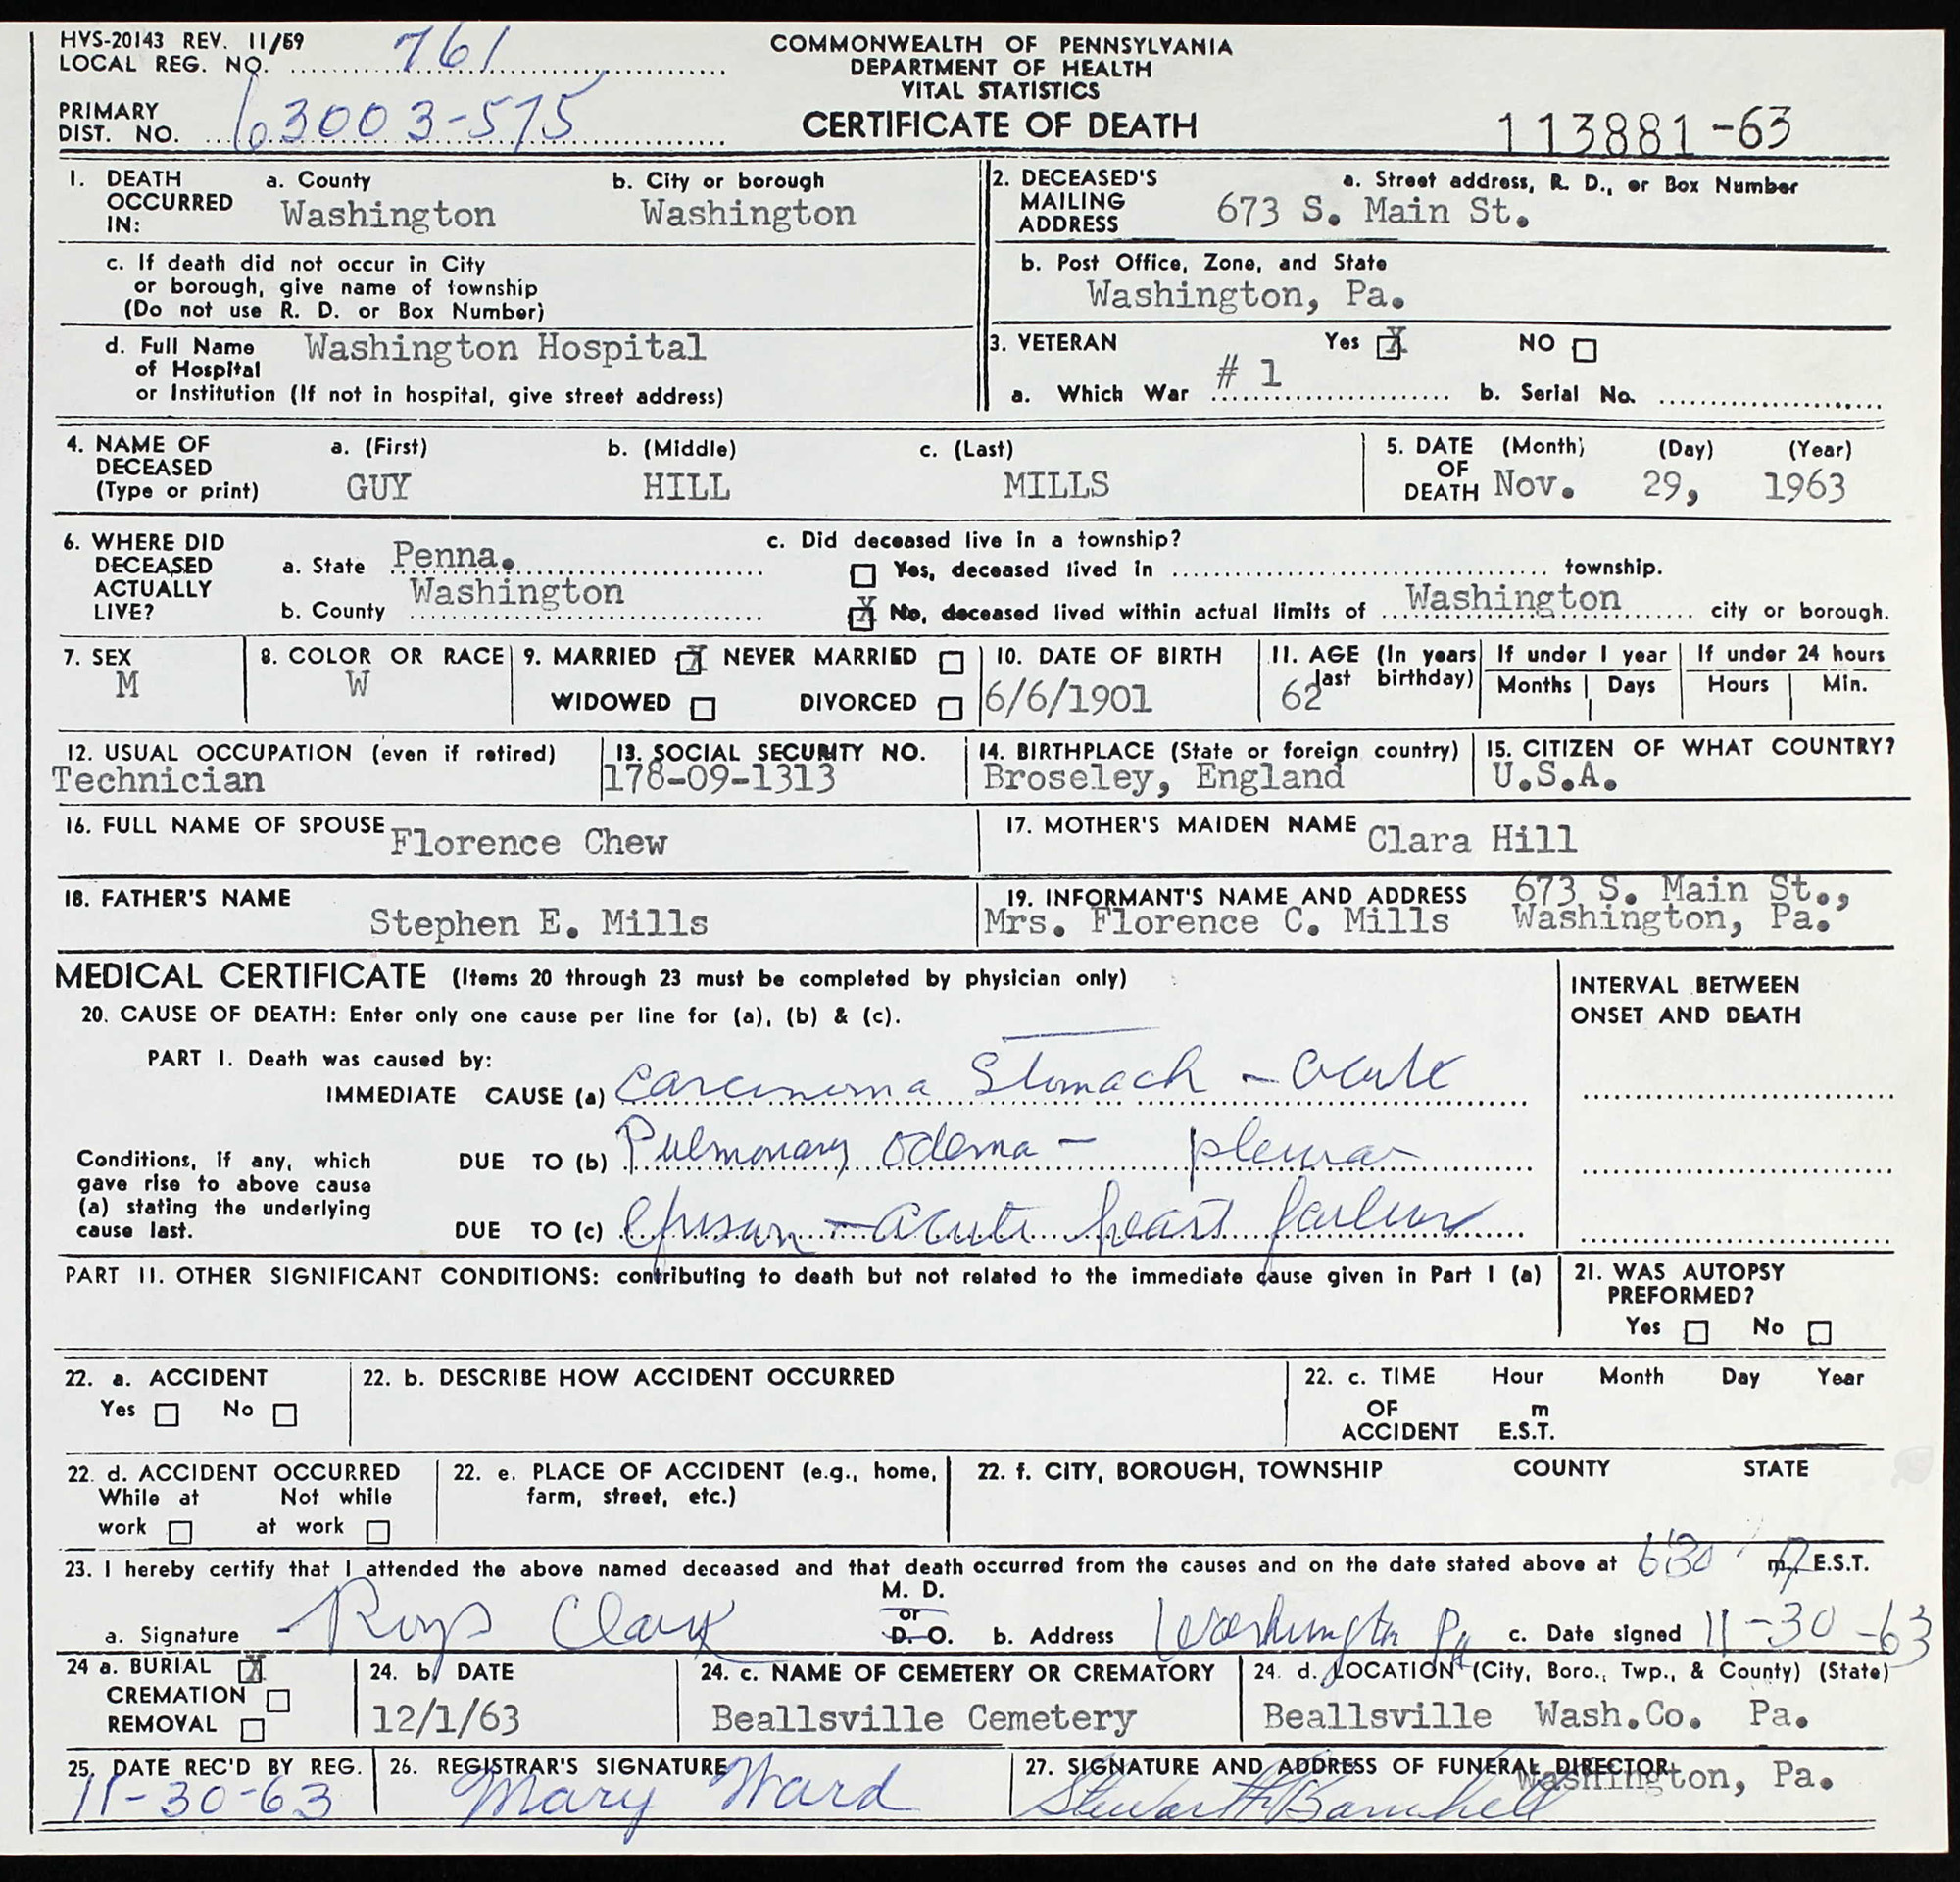 HVS-20143 REV. 11/59
LOCAL REG. NO. 761
COMMONWEALTH OF PENNSYLVANIA
DEPARTMENT OF HEALTH
VITAL STATISTICS
PRIMARY DIST. NO. 63003-575
CERTIFICATE OF DEATH
113881-63
1. DEATH OCCURRED IN: a. County Washington b. City or borough Washington
2. DECEASED'S MAILING ADDRESS a. Street address, R. D., or Box Number 673 S. Main St.
c. If death did not occur in City
or borough, give name of township
(Do not use R. D. or Box Number)
b. Post Office, Zone, and State
Washington, Pa.
d. Full Name Washington Hospital
of Hospital
or Institution (If not in hospital, give street address)
3. VETERAN Yes X NO
a. Which War # 1 b. Serial No.
4. NAME OF DECEASED (Type or print) a. (First) b. (Middle) c. (Last)
GUY HILL MILLS
5. DATE OF DEATH (Month) (Day) (Year)
Nov. 29, 1963
6. WHERE DID DECEASED ACTUALLY LIVE? a. State Penna.
b. County Washington
c. Did deceased live in a township?
Yes, deceased lived in township.
X No, deceased lived within actual limits of Washington city or borough.
7. SEX M
8. COLOR OR RACE W
9. MARRIED X NEVER MARRIED
WIDOWED DIVORCED
10. DATE OF BIRTH 6/6/1901
11. AGE (In years last birthday) 62
If under 1 year Months Days
If under 24 hours Hours Min.
12. USUAL OCCUPATION (even if retired)
Technician
13. SOCIAL SECURITY NO.
178-09-1313
14. BIRTHPLACE (State or foreign country)
Broseley, England
15. CITIZEN OF WHAT COUNTRY?
U.S.A.
16. FULL NAME OF SPOUSE Florence Chew
17. MOTHER'S MAIDEN NAME Clara Hill
18. FATHER'S NAME
Stephen E. Mills
19. INFORMANT'S NAME AND ADDRESS 673 S. Main St.,
Mrs. Florence C. Mills Washington, Pa.
MEDICAL CERTIFICATE (Items 20 through 23 must be completed by physician only)
INTERVAL BETWEEN
ONSET AND DEATH
20. CAUSE OF DEATH: Enter only one cause per line for (a), (b) & (c).
PART I. Death was caused by:
IMMEDIATE CAUSE (a) Carcinoma Stomach - acute
Conditions, if any, which
gave rise to above cause
(a) stating the underlying
cause last.
DUE TO (b) Pulmonary odema - pleura
DUE TO (c) - acute heart failure
PART II. OTHER SIGNIFICANT CONDITIONS: contributing to death but not related to the immediate cause given in Part I (a)
21. WAS AUTOPSY
PREFORMED?
Yes No
22. a. ACCIDENT
Yes No
22. b. DESCRIBE HOW ACCIDENT OCCURRED
22. c. TIME OF ACCIDENT Hour Month Day Year
m
E.S.T.
22. d. ACCIDENT OCCURRED
While at work Not while at work
22. e. PLACE OF ACCIDENT (e.g., home,
farm, street, etc.)
22. f. CITY, BOROUGH, TOWNSHIP COUNTY STATE
23. I hereby certify that I attended the above named deceased and that death occurred from the causes and on the date stated above at 630 m. E.S.T.
a. Signature Clark M. D. or D. O. b. Address Washington Pa c. Date signed 11-30-63
24 a. BURIAL X
CREMATION
REMOVAL
24. b. DATE
12/1/63
24. c. NAME OF CEMETERY OR CREMATORY
Beallsville Cemetery
24. d. LOCATION (City, Boro., Twp., & County) (State)
Beallsville Wash.Co. Pa.
25. DATE REC'D BY REG.
11-30-63
26. REGISTRAR'S SIGNATURE
Mary Ward
27. SIGNATURE AND ADDRESS OF FUNERAL DIRECTOR
Washington, Pa.